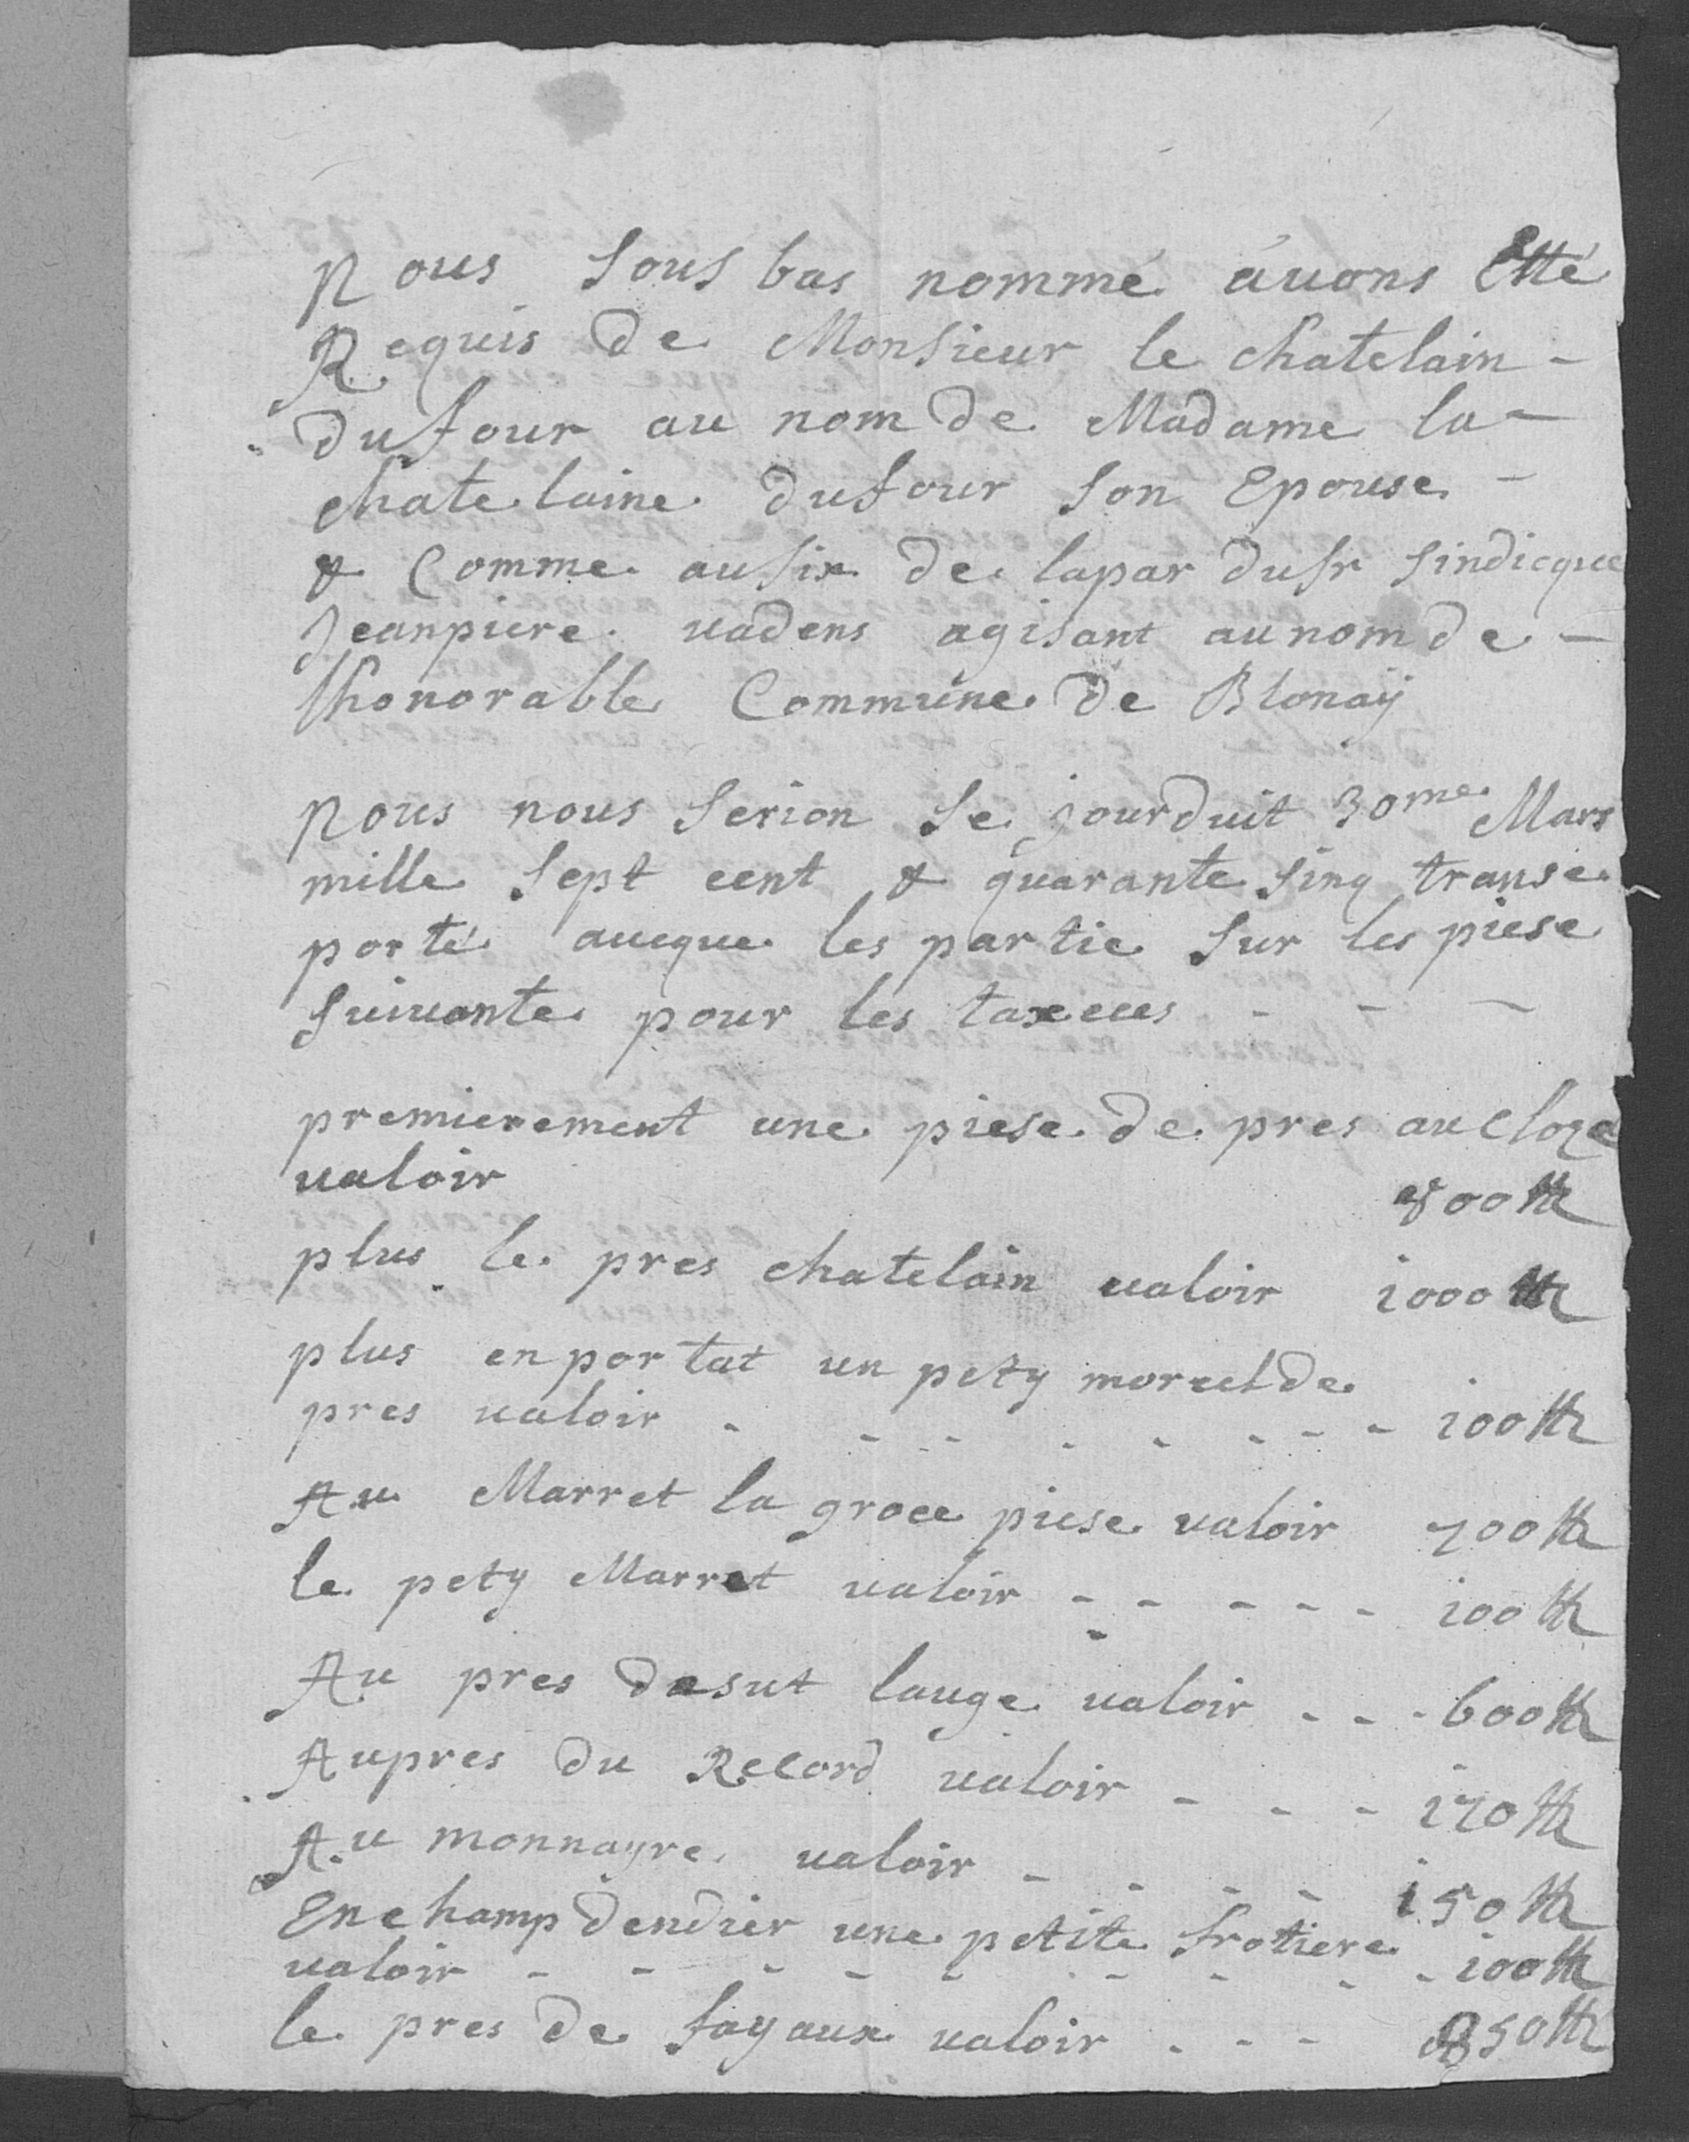 Nous sous bas nommé auons Etté
Requis de Monsieur le chatelain -
dufour au nom de Madame la -
chatelaine dufour son Epouse -
& Comme ausix de lapar dusr sindicque
Jeanpiere uadens agisant au nom de -
lhonorable Commune de Blonaÿ
Nous nous serion se jourduit 30me Mars
mille sept cent & quarante sinq transe
porté aucque les partie sur les piese
suiuante pour les taxeues - - -
premierement une piese de pres au Cloze
ualoir 800 ₶
plus le pres chatelain ualoir 1000 ₶
plus en portat un pety morcelde
pres ualoir - - - - - - - - - 100 ₶
Au Marret la groce piese ualoir 700 ₶
le pety Marret ualoir - - - - - 100 ₶
Au pres desut lauge ualoir - - - 600 ₶
Aupres du Record ualoir - - - 170 ₶
Au monnayre ualoir - - - - 150 ₶
En champ dendier une petite frotiere
ualoir - - - - - - - - - 100 ₶
le pres de fayaux ualoir - - - 850 ₶